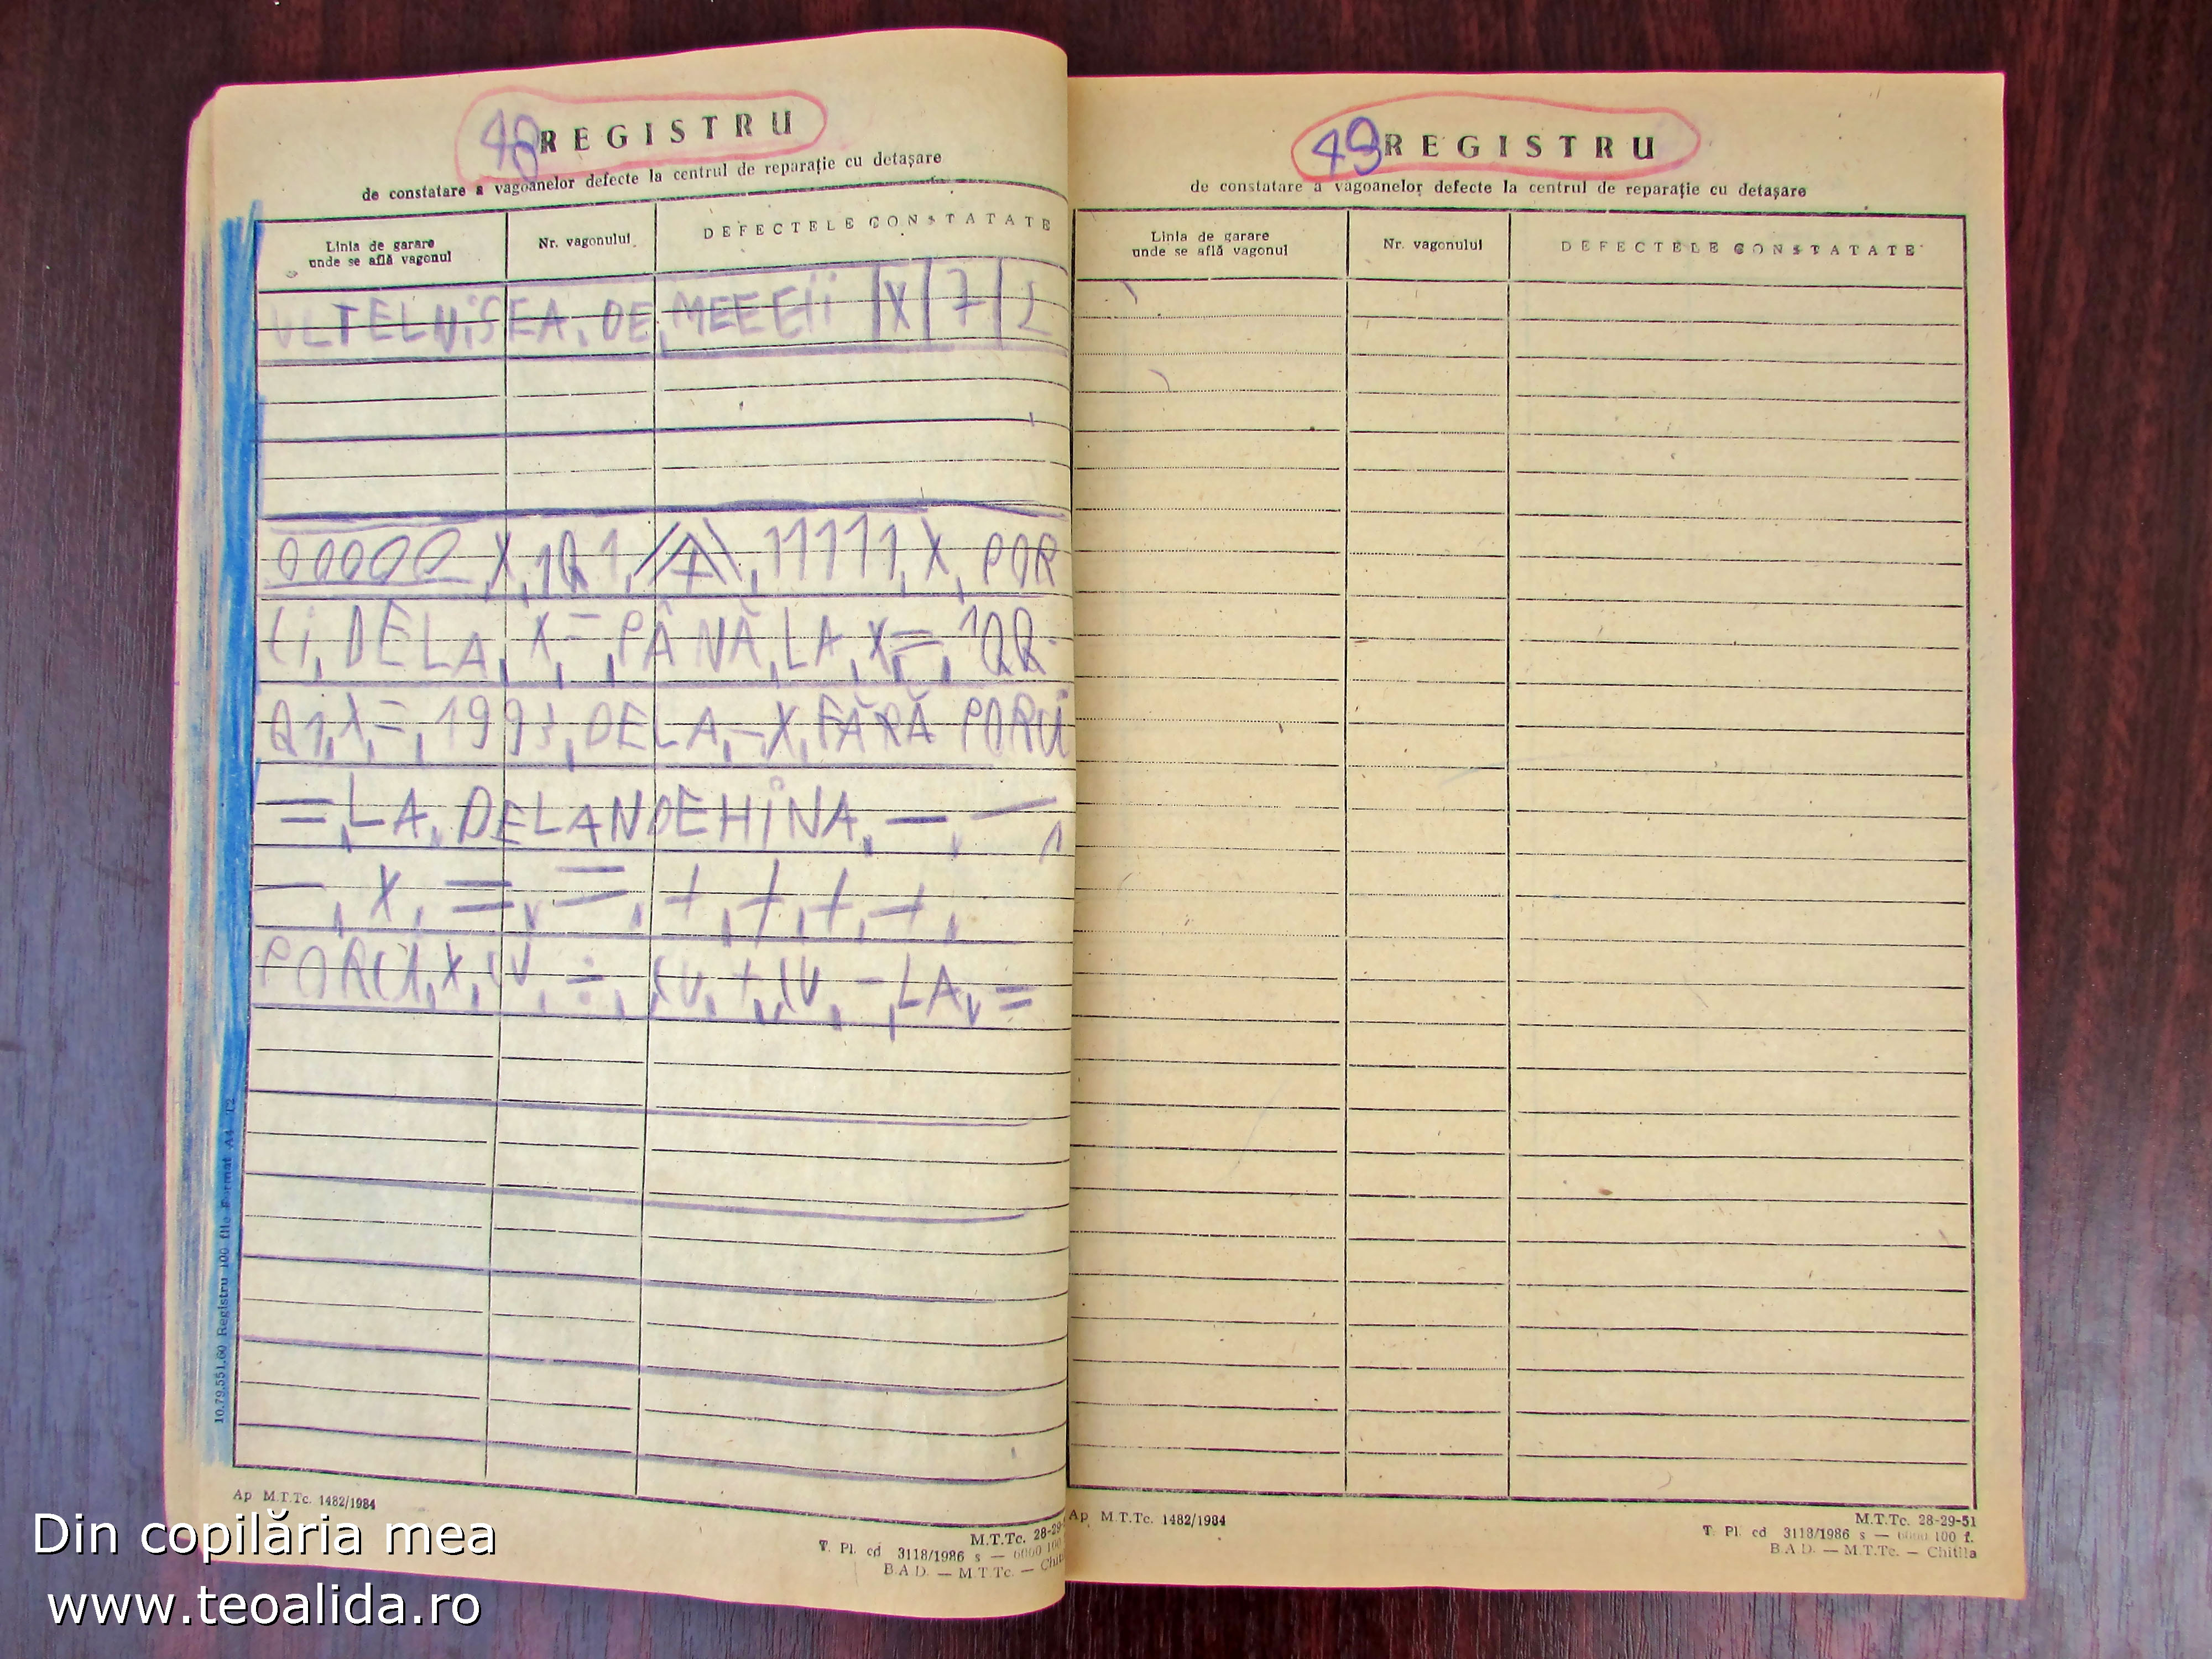 48 REGISTRU
de constatare a vagoanelor defecte la centrul de reparație cu detașare
Linia de garare
unde se află vagonul
Nr. vagonului
DEFECTELE CONSTATATE
DE MEEEII X 7
00000 X, 1Q1, 11111, X, POR
CI, DELA, X, =, PÂNĂ, LA, X, =, 1QQ
Q1, X, =, 1993, DELA, -, X, FĂRĂ PORCI
=, LA, DELANDEHINA, -, -,
-, X, =, =, +, +, +, +,
PORCI, X, CU, ÷, CU, +, CU, -, LA, =
10.79.551.60 Registru 100 file Format A4 T2
Ap M.T.Tc. 1482/1984
M.T.Tc. 28-29
T. Pl. cd 3118/1986 s — 6000 100
B.A.D. — M.T.Tc. — Chitila
49 REGISTRU
de constatare a vagoanelor defecte la centrul de reparație cu detașare
Linia de garare
unde se află vagonul
Nr. vagonului
DEFECTELE CONSTATATE
Ap M.T.Tc. 1482/1984
M.T.Tc. 28-29-51
T. Pl. cd 3118/1986 s — 6000 100 f.
B.A.D. — M.T.Tc. — Chitila
Din copilăria mea
www.teoalida.ro